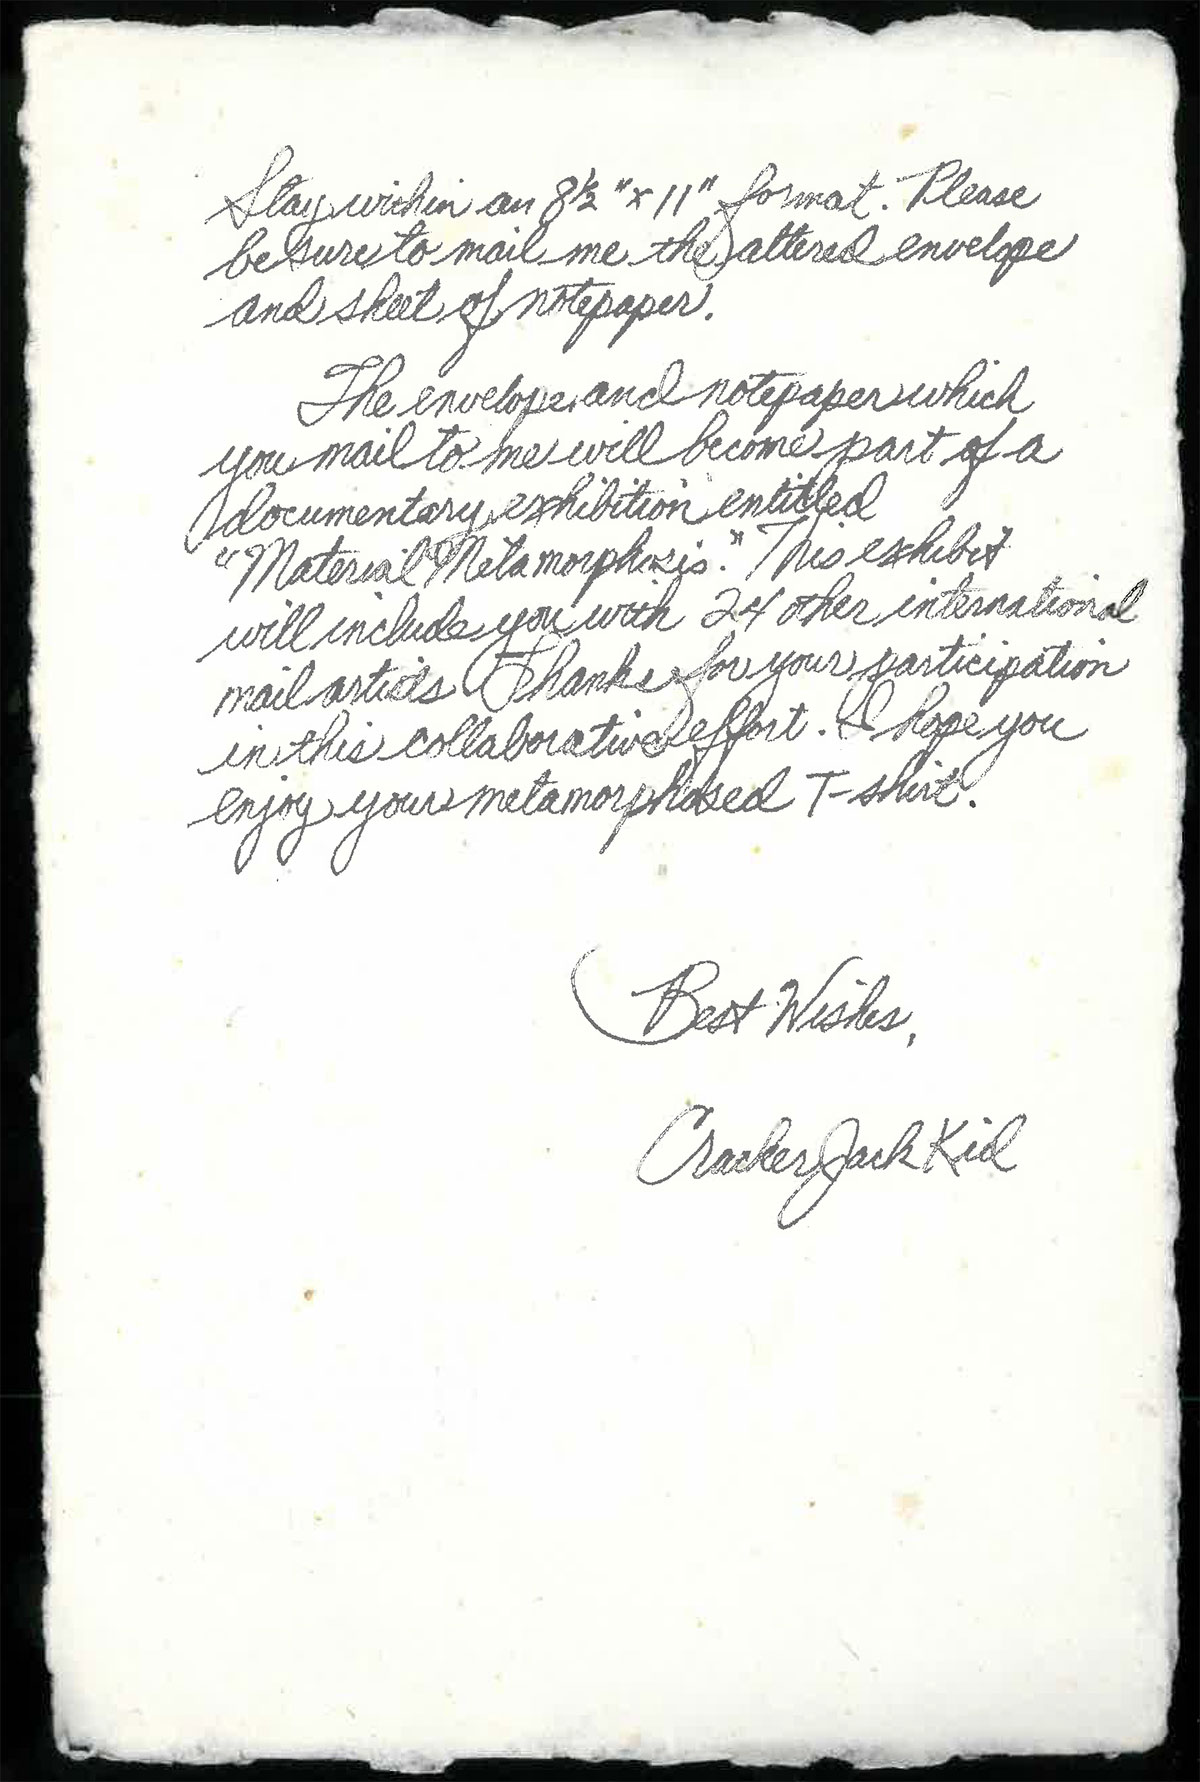 Stay within an 8½"x 11" format. Please
be sure to mail me the altered envelope
and sheet of notepaper.
The envelope and notepaper which
you mail to me will become part of a
documentary exhibition entitled
"Material Metamorphosis." This exhibit
will include you with 24 other international
mail artists. Thanks for your participation
in this collaborative effort. I hope you
enjoy your metamorphosed T-shirt.
Best Wishes,
Cracker Jack Kid